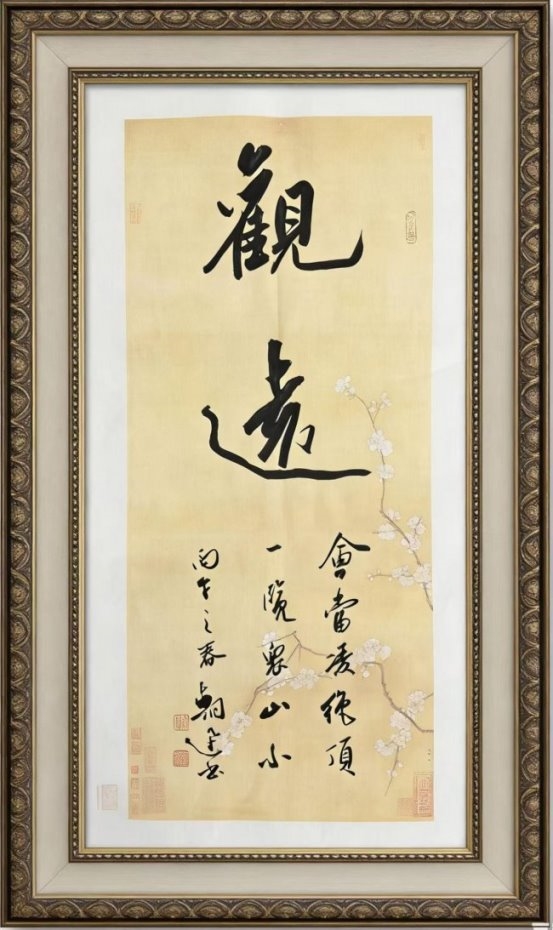 觀
遠
會當凌絕頂
一覽衆山小
丙午之春
書